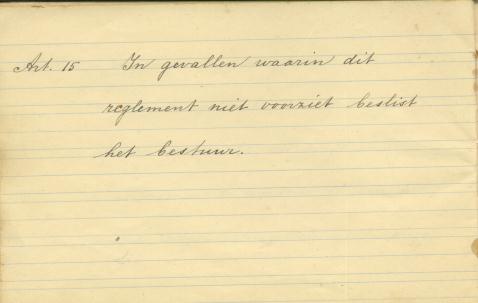 Art. 15 In gevallen waarin dit
reglement niet voorziet beslist
het bestuur.